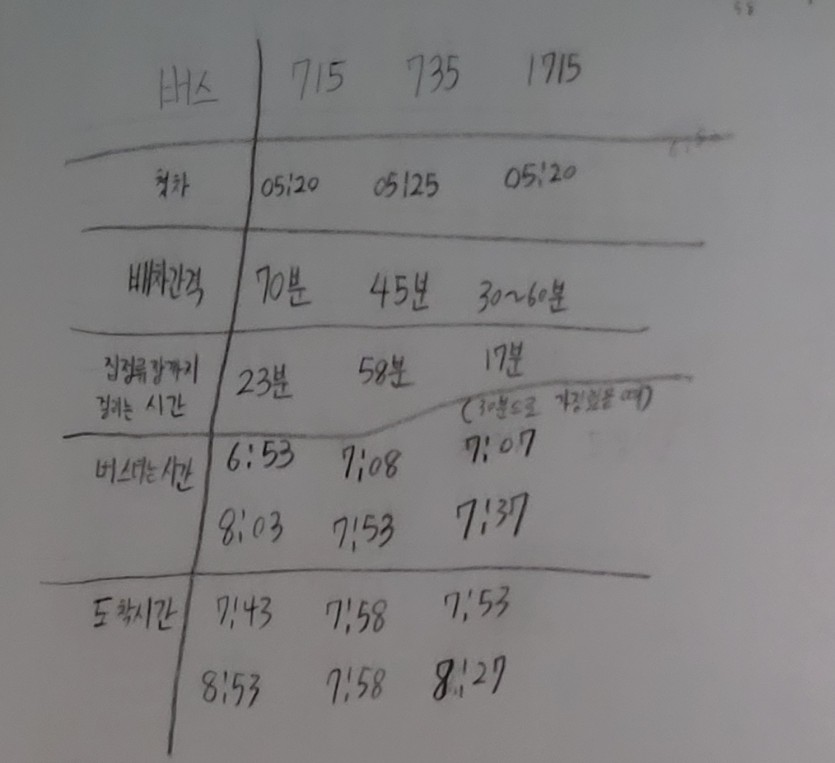 버스 715 735 1715
첫차 05:20 05:25 05:20
배차간격 70분 45분 30~60분
집정류장까지 23분 58분 17분
걸리는 시간 (30분으로 가정했을 때)
버스타는시간 6:53 7:08 7:07
8:03 7:53 7:37
도착시간 7:43 7:58 7:53
8:53 7:58 8:27